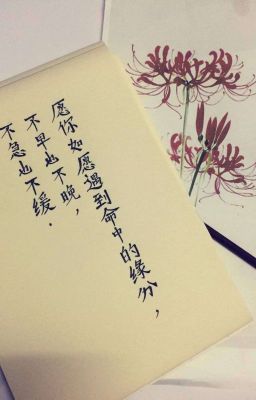 愿你如愿遇到命中的缘分，
不早也不晚，
不急也不缓.